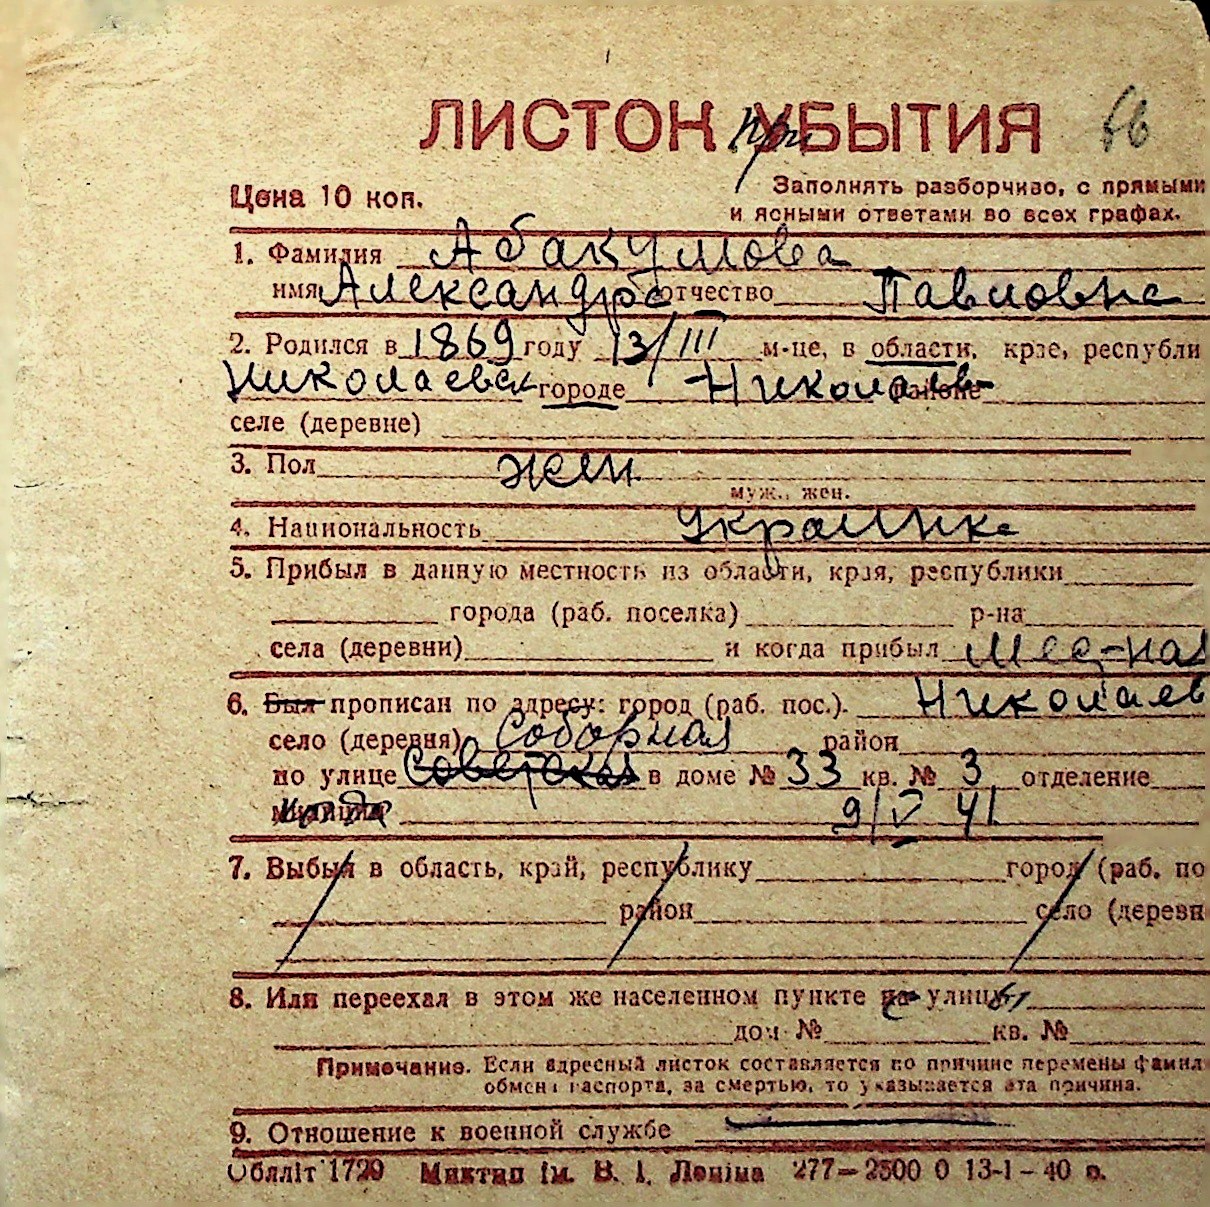 ЛИСТОК УБЫТИЯ
при
Цена 10 коп.
Заполнять разборчиво, с прямыми
и ясными ответами во всех графах.
1. Фамилия Абакумова
имя Александра отчество Павловна
2. Родился в 1869 году 13/III м-це, в области, крае, республи
Николаевск городе Николаев районе
селе (деревне)
3. Пол жен
муж., жен.
4. Национальность Украинка
5. Прибыл в данную местность из области, края, республики
города (раб. поселка) р-на
села (деревни) и когда прибыл мес-ная
6. Был прописан по адресу: город (раб. пос.). Николаев
село (деревня) Соборная район
по улице Советская в доме № 33 кв. № 3 отделение
милиции когда 9/V 41
7. Выбыл в область, край, республику город (раб. по
район село (деревн
8. Или переехал в этом же населенном пункте на с улицы
дом № кв. №
Примечание. Если адресный листок составляется по причине перемены фамил
обмена паспорта, за смертью, то указывается эта причина.
9. Отношение к военной службе
Облліт 1729 Миктип ім. В. І. Леніна 277—2500 0 13-1-40 р.